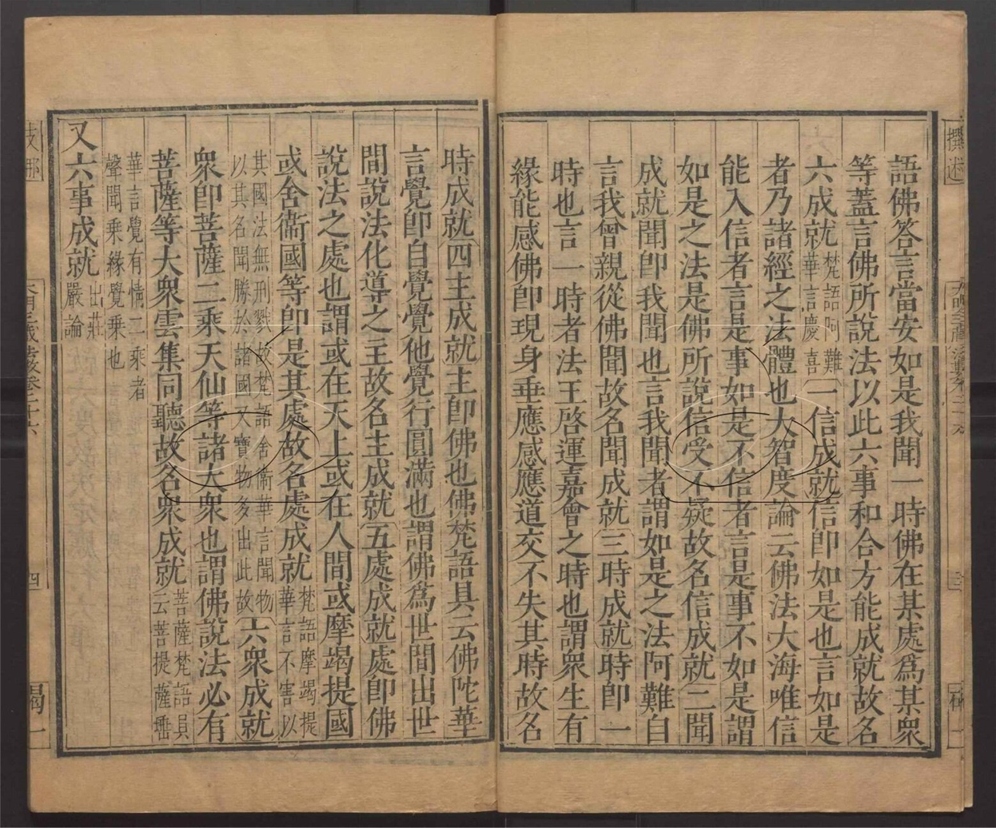 語佛答言當安如是我聞一時佛在某處爲某衆
等蓋言佛所說法以此六事和合方能成就故名
六成就梵語阿難華言慶喜一信成就信卽如是也言如是
者乃諸經之法體也大智度論云佛法大海唯信
能入信者言是事如是不信者言是事不如是謂
如是之法是佛所說信受不疑故名信成就二聞
成就聞卽我聞也言我聞者謂如是之法阿難自
言我曾親從佛聞故名聞成就三時成就時卽一
時也言一時者法王啓運嘉會之時也謂衆生有
緣能感佛卽現身垂應感應道交不失其時故名
時成就四主成就主卽佛也佛梵語具云佛陀華
言覺卽自覺覺他覺行圓滿也謂佛爲世間出世
間說法化導之主故名主成就五處成就處卽佛
說法之處也謂或在天上或在人間或摩竭提國
或舍衞國等卽是其處故名處成就梵語摩竭提華言不害以
其國法無刑戮故梵語舍衞華言聞物以其名聞勝於諸國又寶物多出此故六衆成就
衆卽菩薩二乘天仙等諸大衆也謂佛說法必有
菩薩等大衆雲集同聽故名衆成就菩薩梵語具云菩提薩埵
華言覺有情二乘者聲聞乘緣覺乘也
又六事成就出莊嚴論